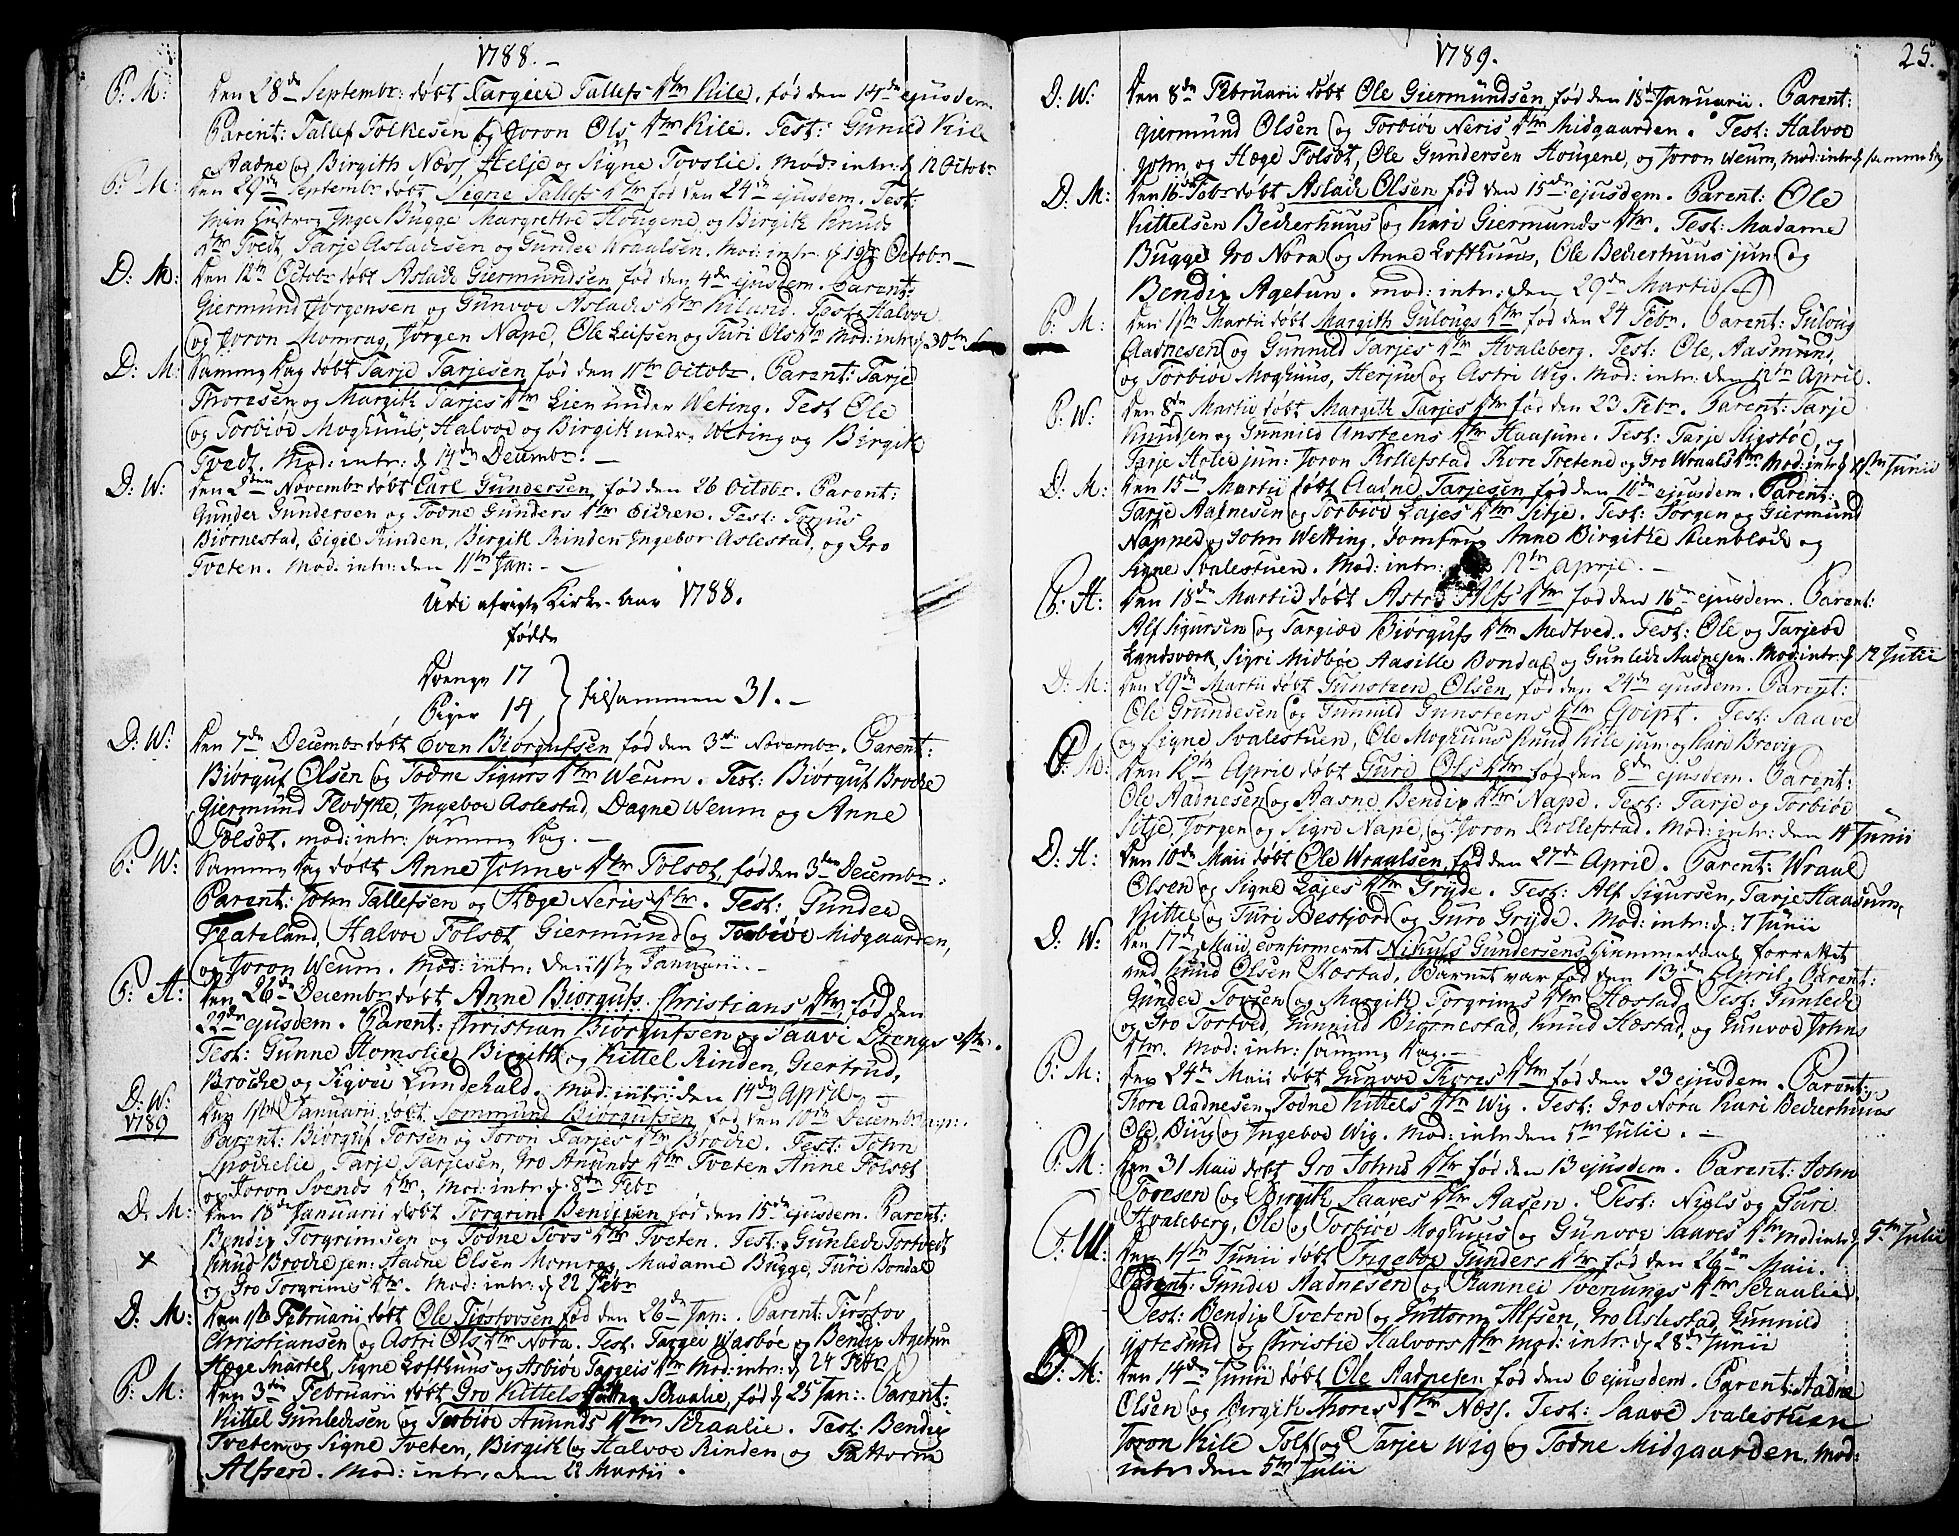 1788. –
P: M: den 28de Septembr: døbt Targier Tallefs dtr Kile, fød den 14de ejusdem.
Parent: Tallef Folkesen og Joron Ols dtr Kile. Test: Gunild Kile
Aadne og Birgith Næss, Helje og Signe Tovslie. Mod: intr: d 12 Octobr
P: M: den 29de Septembr døbt Signe Tallefs dtr fød den 24de ejusdem. Test:
min Hustroe Inge Bugge Margrethe Hougene, og Birgith Knuds
dtr Tvedt, Tarje Aslachsen og Gunder Wraalsen. Mod: intr: d 19de Octobr –
D: M: den 12te Octobr døbt Aslach Giermundsen fød den 4de ejusdem. Parent:
Giermund Jørgensen og Gunvor Aslachs dtr Kiland. Test: Halvor
og Joron Momrag, Jørgen Nape, Ole Leifsen og Turi Ols dtr Mod: intr: d 30te
D: M: Samme dag døbt Tarje Tarjesen fød den 11te Octobr. Parent: Tarje
Thoresen og Margith Tarjes dtr Lien under Weting. Test Ole
og Torbiør Moghuus, Halvor og Birgith under Weting og Birgith
Tvedt. Mod: intr: d 14de Decembr. –
D: W: den 2den Novembr døbt Carl Gundersen, fød den 26 Octobr. Parent:
Gunder Gundersen og Todne Gunders dtr Eichen. Test: Torjus
Biørnestad, Eigil Rinden, Birgith Rinden Ingebor Aslestad, og Gro
Tveten. Mod: intr: den 11te Jan: –
Udi afvigte Kirke-Aar 1788.
fødde
Drenge 17
Piger 14 } tilsammen 31. –
D: W: den 7de Decembr døbt Even Biørgufsen fød den 3de Novembr. Parent:
Biørguf Olsen og Todne Sigurs dtr Weum. Test: Biørguf Broche
Giermund Flodske, Ingebor Aslestad, Dagne Weum og Anne
Folsæt. mod: intr: samme dag. –
P: W: Samme dag døbt Anne Johns dtr Folsæt, fød den 3den Decembr:
Parent: John Tallefsen og Hæge Neris dtr. Test: Gunder
Flateland, Halvor Folsæt Giermund og Torbiør Midgaarden,
og Joron Weum. Mod: intr: den 11te Januarii. –
P: H: den 26de Decembr døbt Anne Biørgufs. Christians dtr, fød den
22de ejusdem. Parent: Christian Biørgufsen og Saavi Drengs dtr.
Test: Gunne Homslie, Birgith og Kittel Rinden, Giertrud,
Broche og Sigvor Lundehald. mod: intr: den 14de April –
D: W: 1789 den 1te Januarii døbt Sommund Biørgufsen, fød den 10de Decembr: ann:.
Parent: Biørguf Torsen og Joron Tarjes dtr Broche. Test: John
Spochelie, Tarje Tarjesen, Gro Anunds dtr Tveten Anne Folsæt
og Joron Svends dtr, Mod: intr: d: 8de Febr
D: M: den 18de Januarii døbt Torgrim Bendixen fød den 15de ejusdem. Parent:
Bendix Torgrimsen og Todne Tovs dtr Tveten. Test: Gunlech Tortvedt
× Knud Broche jun: Aadne Olsen Momrag, Madame Bugge, Turi Bondal
og Gro Torgrims dtr. Mod: intr: d 22 Febr
D: M: den 1te Februarii døbt Ole Tiostovsen fød den 26de Jan:. Parent: Tiostov
Christiansen og Astri Ols dtr Nora. Test: Targer Wasbøe og Bendix Agetun
Hæge Snartel, Signe Lofthuus og Asbiør Targeis dtr Mod: intr: d 24 Febr
P: M: den 3den Februarii døbt Gro Kittels dtr Seraalie, fød d 25 Jan:. Parent:
Kittel Gunlechsen og Torbiør Anunds dtr Seraalie. Test: Bendix
Tveten og Signe Tveten, Birgith og Halvor Rinden og Guttorm
Alfsen. Mod: intr: den 22 Martii.
1789.
25.
D: W: den 8de Februarii døbt Ole Giermundsen, fød den 18de Januarii. Parent:
Giermund Olsen og Torbiør Neris dtr Midgaarden. Test: Halvor
John og Hæge Folsæt, Ole Gundersen Hougene, og Joron Weum, Mod: intr: d samme dag
D: M: den 16de Febr døbt Aslach Olsen fød den 15de ejusdem. Parent: Ole
Kittelsen Becherhuus og Kari Giermunds dtr. Test: Madame
Bugge Gro Nora og Anne Lofthuus, Ole Becherhuus jun og
Bendix Agetun. mod: intr: den 29de Martii
P: M: den 1ste Martii døbt Margith Gulougs dtr fød den 24 Febr. Parent: Guloug
Aadnesen og Gunnild Tarjes dtr Hvaleberg. Test: Ole, Aasmund,
og Torbiør Moghuus, Herjus og Astri Wig. Mod: intr: den 12te April.
P: W: den 8de Martii døbt Margith Tarjes dtr fød den 23 Febr. Parent: Tarje
Knudsen og Gunnild Ansteens dtr Haasune. Test: Tarje Sigstøe, og
Tarje Holte jun: Joron Rollefstad Thore Tvetene og Gro Wraals dtr. Mod: intr: d 1ste Junii
D: M: den 15de Martii døbt Aadne Tarjesen fød den 10de ejusdem. Parent:
Tarje Aadnesen og Torbiør Lajes dtr Sitje. Test: Jørgen og Giermund
Napped og John Wetting. Jomfrue Anne Birgithe Steenbloch og
Signe Svalestuen. Mod: intr: 12te April. –
P: H: den 18de Martii døbt Astri Alfs dtr fød den 16de ejusdem. Parent:
Alf Sigursen og Targiær Biørgufs dtr Metved. Test: Ole og Tarjerd
Landsværk, Sigri Midbøe Aasille Bondal og Gunlech Aadnesen. Mod: intr: d 12 Julii
D: M: den 29de Martii døbt Gunsteen Olsen, fød den 24de ejusdem. Parent:
Ole Grundesen og Gunnild Gunsteens dtr Qvipt. Test: Saave
og Signe Svalestuen, Ole Moghuus Knud Kile jun: og Kari Brevig
P: M: den 12te April døbt Guri Ols dtr fød den 8de ejusdem. Parent:
Ole Aadnesen og Aasne Bendix dtr Nape. Test: Tarje og Torbiør
Sitje, Jørgen og Sigre Nape, og Joron Rollefstad. Mod: intr: den 14 Junii
D: H: den 10de Maii døbt Ole Wraalsen, fød den 27de April. Parent: Wraal
Olsen og Signe Lajes dtr Gryde. Test: Alf Sigursen, Tarje Haasum,
Kittel og Turi Besfjord og Guro Gryde. Mod: intr: d: 7 Junii
D: W: den 17de Maii confirmeret Nikuls Gundersens hiemmedaab forrettet
ved Knud Olsen Hæstad, Barnet var fød den 13de April, Parent:
Gunder Tovsen og Margith Torgrims dtr Hæstad. Test: Gunlech
og Gro Tortved, Gunnild Biørnestad, Knud Hæstad, og Gunvor Johns
dtr. Mod: intr: samme dag. –
P: M: den 24de Maii døbt Gunvor Thores dtr fød den 23 ejusdem. Parent:
Thore Aadnesen, Todne Kittels dtr Wig. Test: Gro Nora Kari Becherhuus
Ole Biug og Ingebor Wig. Mod: intr den 5te Julii. –
P: M: den 31 Maii døbt Gro Johns dtr fød den 13 ejusdem. Parent: John
Toresen og Birgith Saaves dtr Aasen. Test: Niels og Guri
Hvaleberg, Ole og Torbiør Moghuus og Gunvor Saaves dtr mod: intr: d 5te Julii
P: W: den 11te Junii døbt Ingebor Gunders dtr fød den 26de Maii.
Parent: Gunder Aadnesen og Rannei Sverungs dtr Seraalie.
Test: Bendix Tveten og Guttorm Alfsen, Gro Aslestad, Gunnild
Ystesund og Christie Halvors dtr mod: intr: d 28de Junii
D: M: den 14de Junii døbt Ole Aadnesen fød den 6 ejusdem. Parent: Aadne
Olsen og Birgith Thores dtr Næss. Test: Saave Svalestuen
Joron Kile Tolf og Tarjer Wig og Todne Midgaarden. Mod:
intr: den 5te Julii